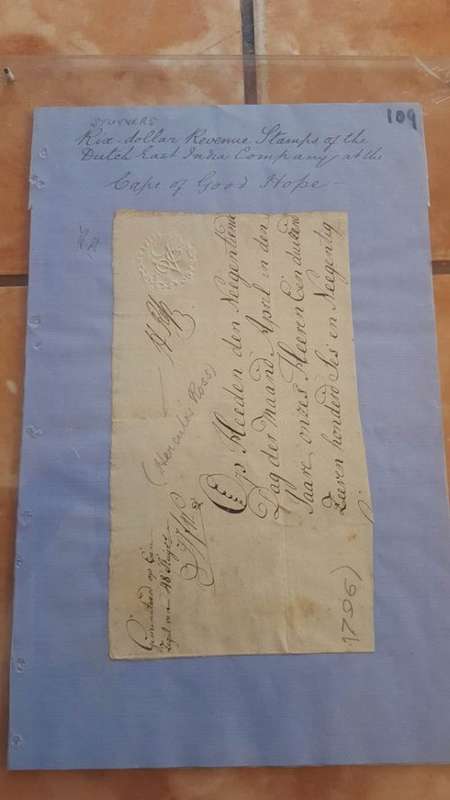 109
STUIVERS
Rix-dollar Revenue Stamps of the
Dutch East India Company at the
Cape of Good Hope —
(Hercules Ross)
Op Heeden den Neegentiende
Dag der Maand April in den
Jaare onzes Heeren Een duizend
Zeeven honderd Ses in Neegentig
1796)